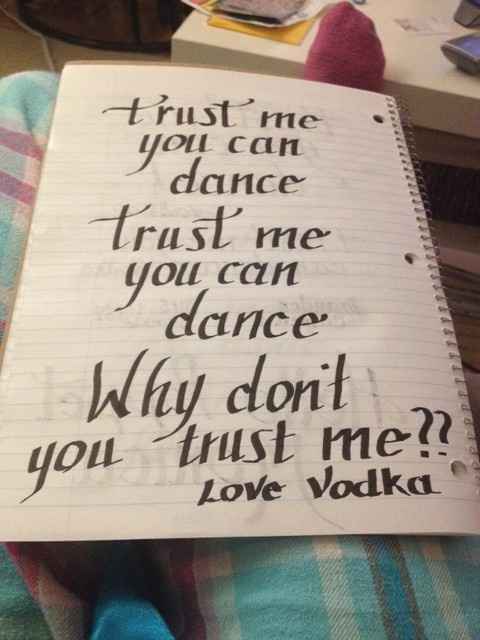 trust me
you can
dance
trust me
you can
dance
Why don't
you trust me??
Love Vodka